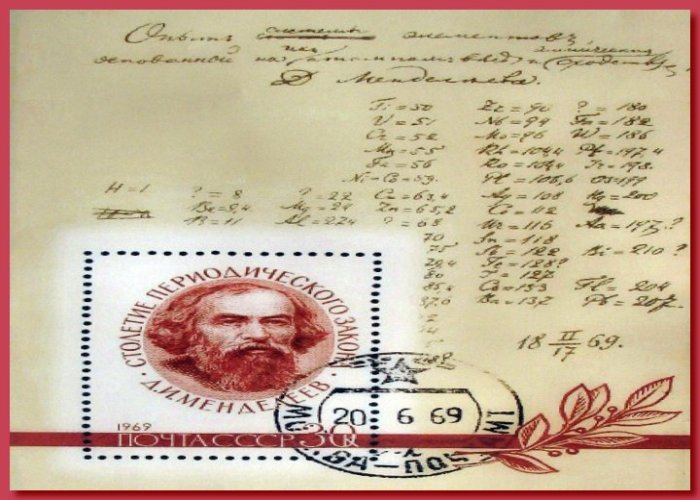 Опытъ системы элементовъ
основанной на ихъ атомномъ весѣ и химическомъ сходствѣ
Д. Менделѣева.
Ti = 50 Zr = 90 ? = 180
V = 51 Nb = 94 Ta = 182
Cr = 52 Mo = 96 W = 186
Mn = 55 Rh = 104,4 Pt = 197,4
Fe = 56 Ro = 104,4 Ir = 198.
Ni = Co = 59. Pl = 106,6 Os = 199
H = 1 ? = 8 ? = 22 Cu = 63,4 Ag = 108 Hg = 200
Be = 9,4 Mg = 24 Zn = 65,2 Cd = 112
B = 11 Al = 27,4 ? = 68 Ur = 116 Au = 197?
70 Sn = 118
75 Sb = 122 Bi = 210?
79,4 Te = 128?
80 J = 127
85,4 Cs = 133 Tl = 204
87,6 Ba = 137 Pb = 207.
92
18 II/17 69.
СТОЛЕТИЕ ПЕРИОДИЧЕСКОГО ЗАКОНА
· Д.И.МЕНДЕЛЕЕВ ·
1969
ПОЧТА СССР 30к
20 6 69